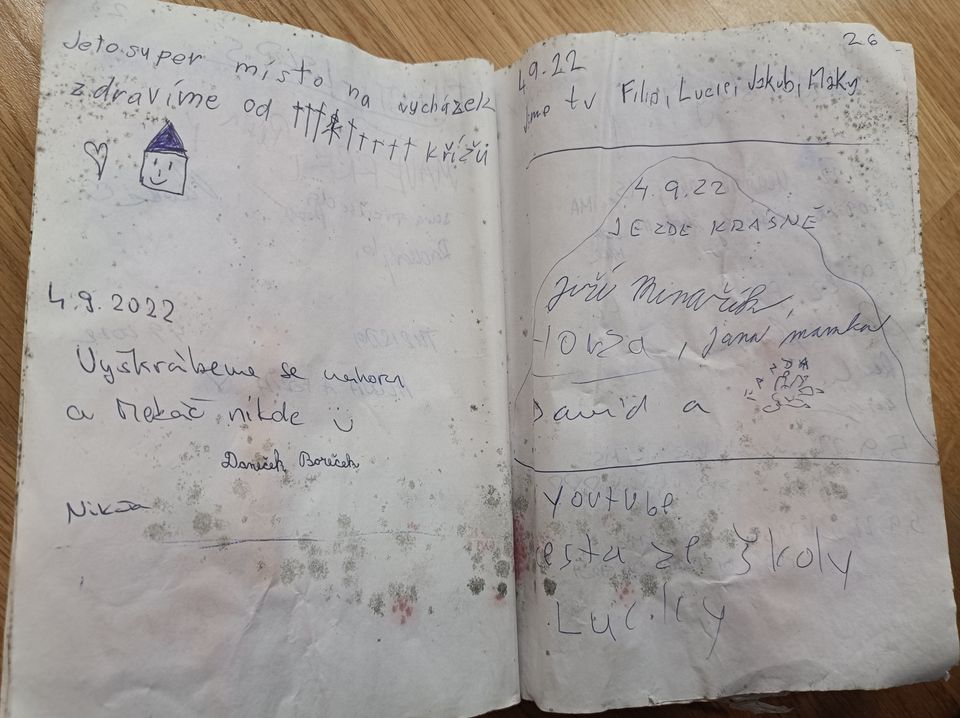 Jeto super místo na vycházek
zdravíme od křížů
4.9.2022
Vyškrábeme se nahoru
a Mekáč nikde
Daneček Boreček
Nikča
26
4.9.22
Jsme tu Filip, Lucie, Jakub, Maky
4.9.22
JE ZDE KRÁSNĚ
Jiří Minařík,
Honza, Jana mamka
David a
youtube
cesta ze školy
Luc.ky